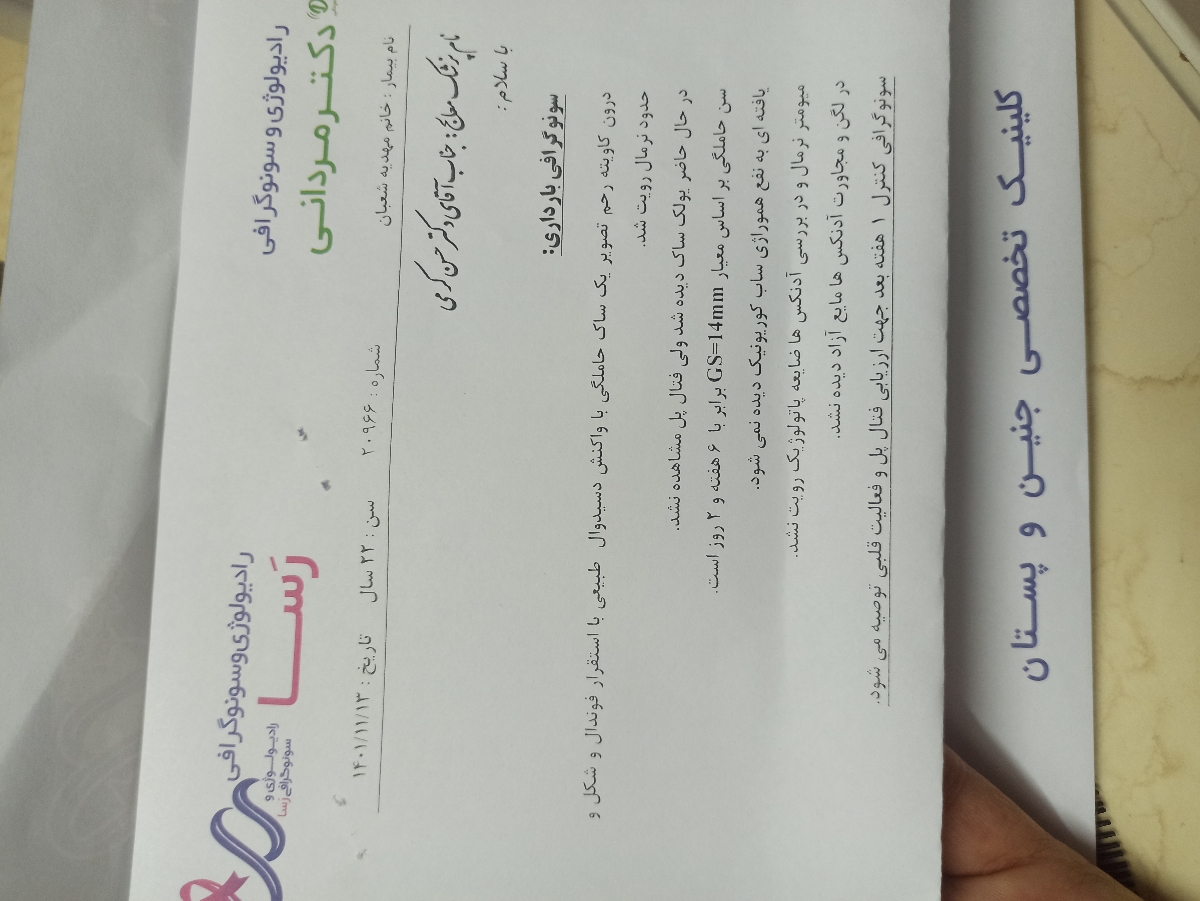 رادیولوژی و سونوگرافی
دکتر مردانی
رادیولوژی و سونوگرافی
رَسا
رادیولوژی و
سونوگرافی رَسا
نام بیمار : خانم مهدیه شعبان شماره : ۲۰۹۶۶ سن : ۲۲ سال تاریخ : ۱۴۰۱/۱۱/۱۳
نام پزشک معالج : جناب آقای دکتر حسن کرمی
با سلام :
سونوگرافی بارداری:
درون کاویته رحم تصویر یک ساک حاملگی با واکنش دسیدوال طبیعی با استقرار فوندال و شکل و
حدود نرمال رویت شد.
در حال حاضر یولک ساک دیده شد ولی فتال پل مشاهده نشد.
سن حاملگی بر اساس معیار GS=14mm برابر با ۶ هفته و ۲ روز است.
یافته ای به نفع هموراژی ساب کوریونیک دیده نمی شود.
میومتر نرمال و در بررسی آدنکس ها ضایعه پاتولوژیک رویت نشد.
در لگن و مجاورت آدنکس ها مایع آزاد دیده نشد.
سونوگرافی کنترل ۱ هفته بعد جهت ارزیابی فتال پل و فعالیت قلبی توصیه می شود.
کلینیک تخصصی جنین و پستان